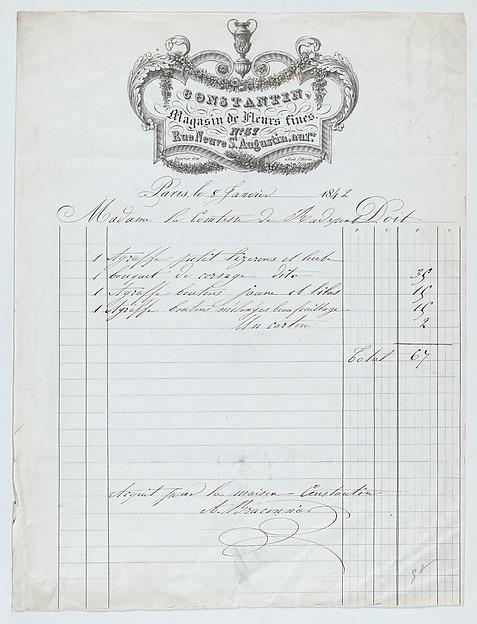 CONSTANTIN,
Magasin de Fleurs fines,
No. 37
Rue Neuve St. Augustin, au 1er
Paris, le 8 Janvier 1842
Madame la Comtesse de Doit
1 Agraffe petit lizerons et herbe
1 bouquet de corsage dito 35
1 Agraffe boutons jaune et lilas 15
1 Agraffe boutons melanges beau feuillage 15
Un carton 2
Total 67
Acquit pour la maison Constantin
A. Braconnier